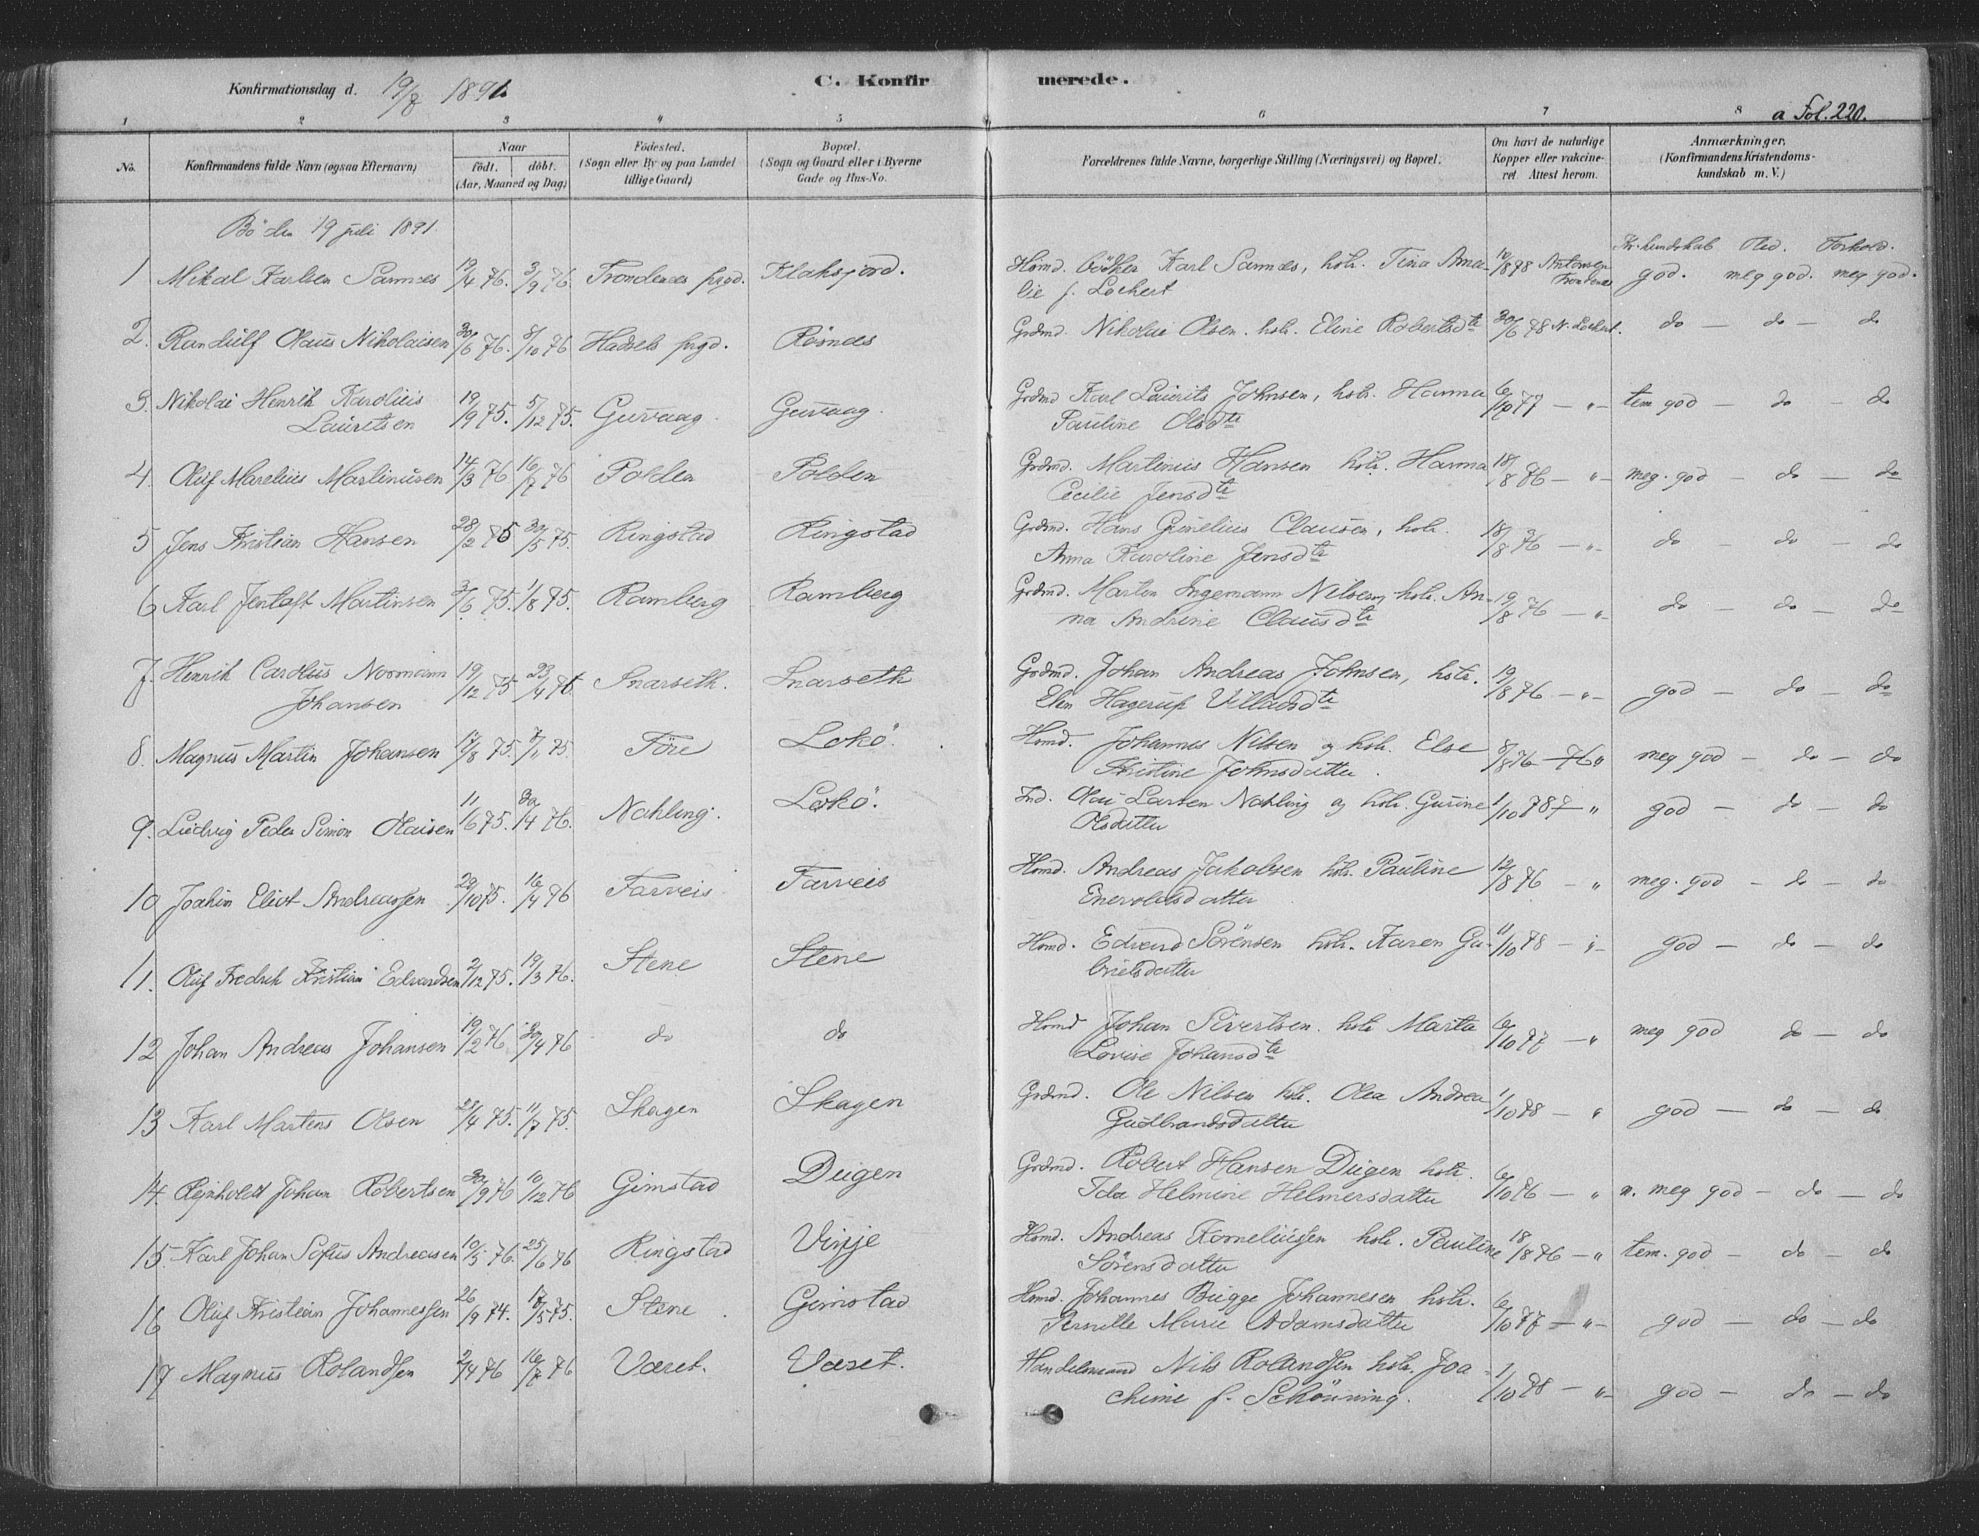 Konfirmationsdag d. 19/7 1891. C. Konfirmerede. a Fol. 220.
1 2 3 4 5 6 7 8
No. Konfirmandens fulde Navn (ogsaa Efternavn) Naar født. døbt. (Aar, Maaned og Dag) Fødested. (Sogn eller By og paa Landet tillige Gaard) Bopæl. (Sogn og Gaard eller i Byerne Gade og Hus-No. Forældrenes fulde Navne, borgerlige Stilling (Næringsvei) og Bopæl. Om havt de naturlige Kopper eller vakcineret. Attest herom. Anmærkninger. (Konfirmandens Kristendomskundskab m. V.)
Bö den 19 juli 1891.
Kr. kundskab Flid. Forhold.
1 Mikal Karlsen Sannes 12/4 76. 3/9 76. Trondenes prgd. Klaksjord. Hmd. Karl Sannes, hstr. Tina Ama-
lie f. Lockert 10/8 78 god. meg god. meg god.
2. Randulf Olaus Nikolaisen 30/6 76. 8/10 76 Hadsels prgd. Røsnes Grdmd. Nikolai Olsen. hstr. Eline Robertsdtr 30/6 78 N. Lockert. do — do — do
3. Nikolai Henrik Karolius
Lauritsen 19/9 75. 5/12 75. Guvaag. Guvaag. Grdmd Karl Laurits Johnsen, hstr. Hanna
Pauline Olsdtr 6/10 77 — " — tem. god — do — do
4. Oluf Marelius Martinusen 14/3 76 16/7 76 Polden Polden Grdmd. Martinus Hansen hstr. Hanna
Cecilie Jensdtr 18/8 76 — " — meg. god — do — do
5 Jens Kristian Hansen 28/2 75 30/5 75. Ringstad Ringstad Grdmd. Hans Clausen, hstr.
Anna Karoline Jensdtr 18/8 76 — " — do — do — do
6 Karl Jentoft Martinsen 3/6 75. 1/8 75. Ramberg Ramberg Grdmd. Martin Ingemann Nilsen, hstr. An-
na Andrine Clausdtr 19/8 76 — " — do — do — do
7. Henrik Carolius Normann
Johansen 19/12 75 23/4 76 Snarseth. Snarseth Grdmd. Johan Andreas Johnsen, hstr.
Elen Hagerup Villadsdtr 19/8 76 — " — god — do — do
8. Magnus Martin Johansen 17/8 75. 7/11 75. Före Lokö. Hmd. Johannes Nilsen og hstr. Else
Kristine Johnsdatter. 8/8 76 — meg god — do — do
9. Ludvig Peder Simon Olaisen 11/6 75. 30/4 76. Nahling. Lokö. Ind. Olai Larsen Nahling og hstr. Gurine
Olsdatter 1/10 78 — " god — do — do
10 Joakim Eliot Andreassen 29/10 75. 16/4 76 Farveis Farveis Hmd. Andreas Jakobsen hstr. Pauline
Enevoldsdatter 12/8 76 — " meg. god — do — do
11. Oluf Fredrik Kristian Edvardsen 2/12 75. 19/3 76. Stene Stene Hmd. Edvard Sörensen hstr. Karen Ga-
brielsdatter 11/10 78 — " — god — do — do
12 Johan Andreas Johansen 19/2 76 30/4 76 do do Hmd Johan Sivertsen. hstr Marta
Lovise Johansdtr 6/10 77 — " meg god do — do
13 Karl Martens Olsen 28/4 75. 11/7 75. Skagen Skagen Grdmd. Ole Nilsen hstr. Olea Andrea
Gudbrandsdatter 1/10 78 — " god — do — do
14. Rejnholdt Johan Robertsen 30/9 76 10/12 76 Gimstad Digen Grdmd. Robert Hansen Digen hstr.
Ida Helmine Helmersdatter 6/10 76 — " n. meg god — do — do
15. Karl Johan Sofus Andreasen 10/5 76. 25/6 76 Ringstad Vinje Hmd. Andreas Korneliussen hstr. Pauline
Sörensdatter 18/8 76 — " tem. god — do — do
16 Oluf Kristian Johannessen 26/9 74. 17/5 75. Stene Gimstad Hmd. Johannes Bugge Johannesen hstr.
Pernille Marie Adamsdatter 6/10 77 — " — god — do — do
17 Magnus Rolandsen 2/4 76 16/7 76 Været. Været. Handelsmand Nils Rolandsen hstr. Joa-
chime f. Schönning. 1/10 78 — " — god — do — do